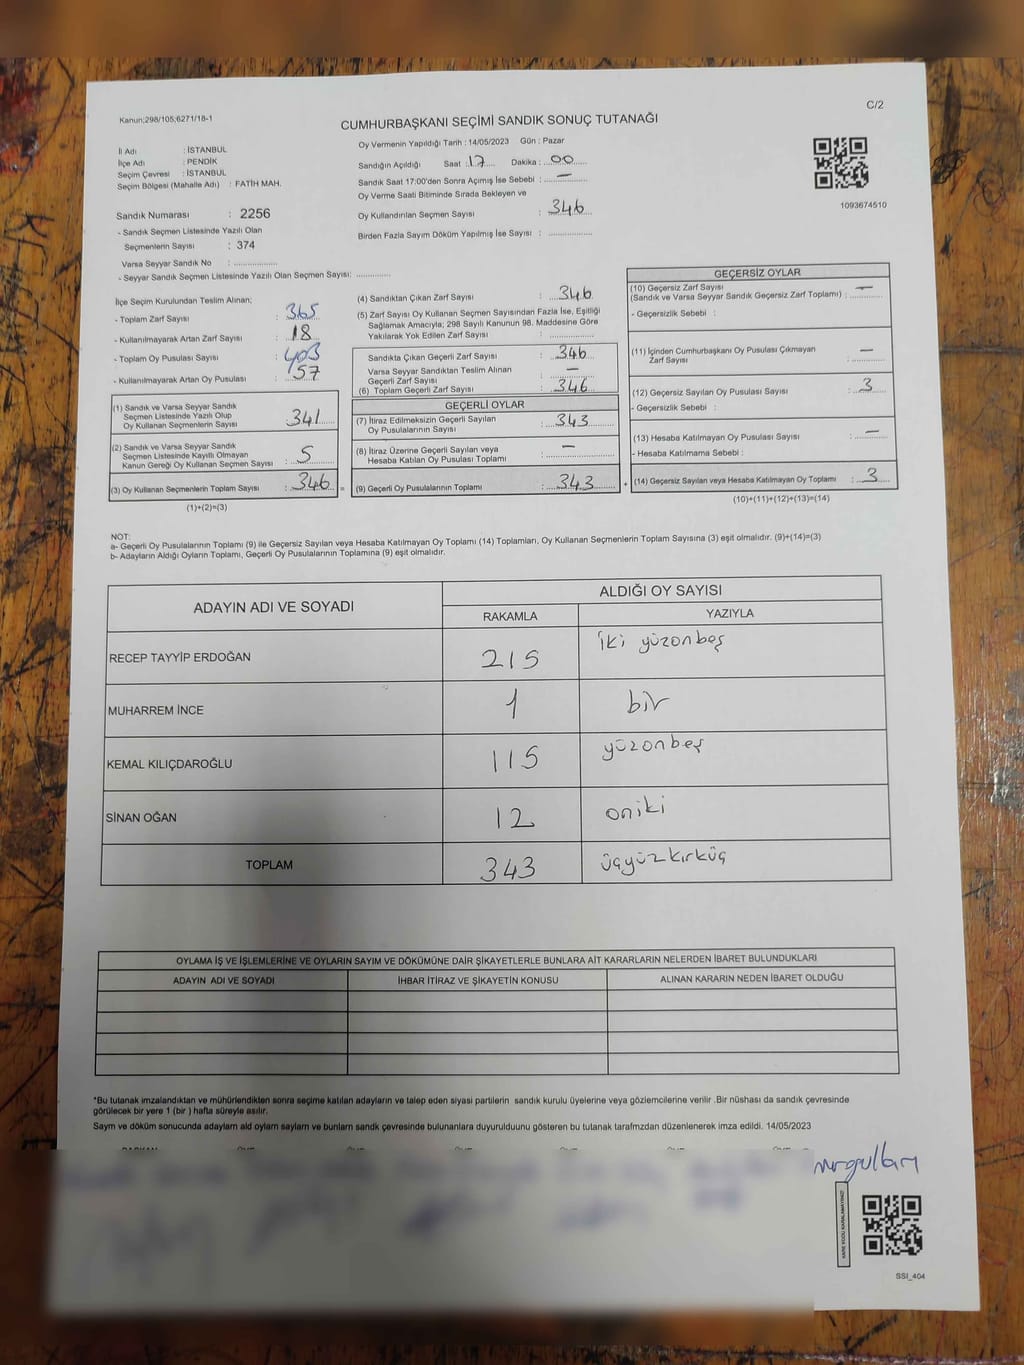 C/2
Kanun:298/105;6271/18-1
CUMHURBAŞKANI SEÇİMİ SANDIK SONUÇ TUTANAĞI
İl Adı : İSTANBUL
İlçe Adı : PENDİK
Seçim Çevresi : İSTANBUL
Seçim Bölgesi (Mahalle Adı) : FATİH MAH.
Sandık Numarası : 2256
- Sandık Seçmen Listesinde Yazılı Olan
Seçmenlerin Sayısı : 374
Varsa Seyyar Sandık No : ..................
- Seyyar Sandık Seçmen Listesinde Yazılı Olan Seçmen Sayısı: ..............
Oy Vermenin Yapıldığı Tarih : 14/05/2023 Gün : Pazar
Sandığın Açıldığı Saat : 17 Dakika : 00
Sandık Saat 17:00'den Sonra Açımış İse Sebebi : —
Oy Verme Saati Bitiminde Sırada Bekleyen ve
Oy Kullandırılan Seçmen Sayısı : 346
Birden Fazla Sayım Döküm Yapılmış İse Sayısı : ..................
1093674510
İlçe Seçim Kurulundan Teslim Alınan;
- Toplam Zarf Sayısı : 365
- Kullanılmayarak Artan Zarf Sayısı : 18
- Toplam Oy Pusulası Sayısı : 403
- Kullanılmayarak Artan Oy Pusulası : 57
(1) Sandık ve Varsa Seyyar Sandık
Seçmen Listesinde Yazılı Olup
Oy Kullanan Seçmenlerin Sayısı : 341
(2) Sandık ve Varsa Seyyar Sandık
Seçmen Listesinde Kayıtlı Olmayan
Kanun Gereği Oy Kullanan Seçmen Sayısı : 5
(3) Oy Kullanan Seçmenlerin Toplam Sayısı : 346
(1)+(2)=(3)
=
(4) Sandıktan Çıkan Zarf Sayısı : 346
(5) Zarf Sayısı Oy Kullanan Seçmen Sayısından Fazla İse, Eşitliği
Sağlamak Amacıyla; 298 Sayılı Kanunun 98. Maddesine Göre
Yakılarak Yok Edilen Zarf Sayısı : ..................
Sandıkta Çıkan Geçerli Zarf Sayısı : 346
Varsa Seyyar Sandıktan Teslim Alınan
Geçerli Zarf Sayısı : —
(6) Toplam Geçerli Zarf Sayısı : 346
GEÇERLİ OYLAR
(7) İtiraz Edilmeksizin Geçerli Sayılan
Oy Pusulalarının Sayısı : 343
(8) İtiraz Üzerine Geçerli Sayılan veya
Hesaba Katılan Oy Pusulası Toplamı : —
(9) Geçerli Oy Pusulalarının Toplamı : 343
+
GEÇERSİZ OYLAR
(10) Geçersiz Zarf Sayısı
(Sandık ve Varsa Seyyar Sandık Geçersiz Zarf Toplamı) : —
- Geçersizlik Sebebi :
(11) İçinden Cumhurbaşkanı Oy Pusulası Çıkmayan
Zarf Sayısı : —
(12) Geçersiz Sayılan Oy Pusulası Sayısı : 3
- Geçersizlik Sebebi :
(13) Hesaba Katılmayan Oy Pusulası Sayısı : —
- Hesaba Katılmama Sebebi :
(14) Geçersiz Sayılan veya Hesaba Katılmayan Oy Toplamı : 3
(10)+(11)+(12)+(13)=(14)
NOT:
a- Geçerli Oy Pusulalarının Toplamı (9) ile Geçersiz Sayılan veya Hesaba Katılmayan Oy Toplamı (14) Toplamları, Oy Kullanan Seçmenlerin Toplam Sayısına (3) eşit olmalıdır. (9)+(14)=(3)
b- Adayların Aldığı Oyların Toplamı, Geçerli Oy Pusulalarının Toplamına (9) eşit olmalıdır.
ADAYIN ADI VE SOYADI ALDIĞI OY SAYISI
RAKAMLA YAZIYLA
RECEP TAYYİP ERDOĞAN 215 iki yüzonbeş
MUHARREM İNCE 1 bir
KEMAL KILIÇDAROĞLU 115 yüzonbeş
SİNAN OĞAN 12 oniki
TOPLAM 343 üçyüzkırküç
OYLAMA İŞ VE İŞLEMLERİNE VE OYLARIN SAYIM VE DÖKÜMÜNE DAİR ŞİKAYETLERLE BUNLARA AİT KARARLARIN NELERDEN İBARET BULUNDUKLARI
ADAYIN ADI VE SOYADI İHBAR İTİRAZ VE ŞİKAYETİN KONUSU ALINAN KARARIN NEDEN İBARET OLDUĞU
*Bu tutanak imzalandıktan ve mühürlendikten sonra seçime katılan adayların ve talep eden siyasi partilerin sandık kurulu üyelerine veya gözlemcilerine verilir .Bir nüshası da sandık çevresinde
görülecek bir yere 1 (bir ) hafta süreyle asılır.
Sayım ve döküm sonucunda adaylam ald oylam saylam ve bunlarn sandk çevresinde bulunanlara duyurulduunu gösteren bu tutanak tarafmzdan düzenlenerek imza edildi. 14/05/2023
KARE KODU KARALAMAYINIZ!
SSI_404